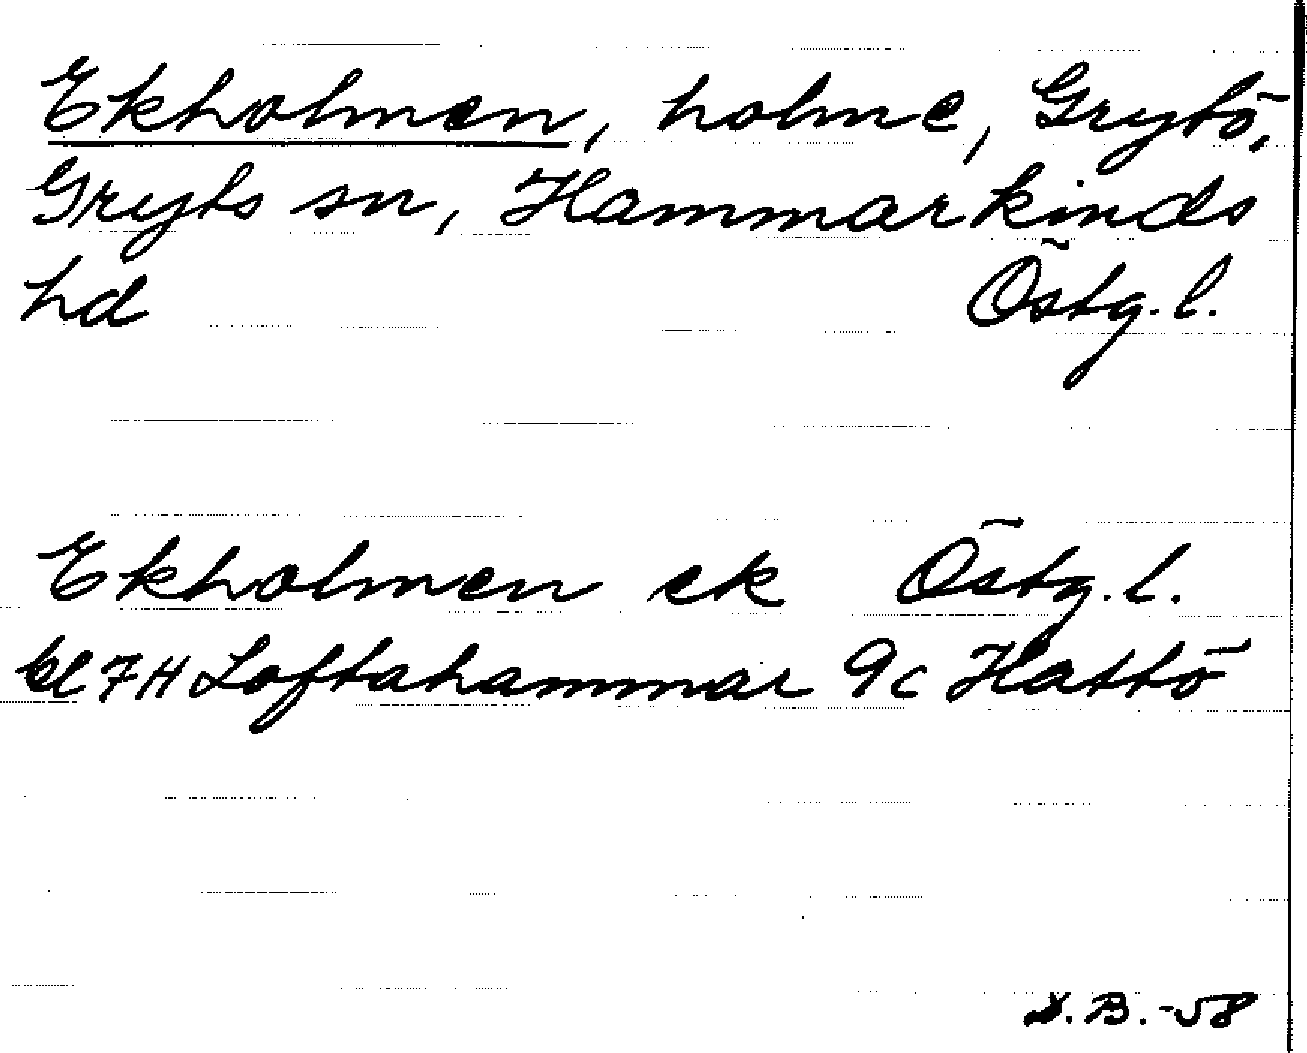 Ekholmen, holme, Grytö,
Gryts sn, Hammarkinds
hd Östg. l.
Ekholmen ek Östg. l.
bl 7H Loftahammar 9c Hattö
B.-58